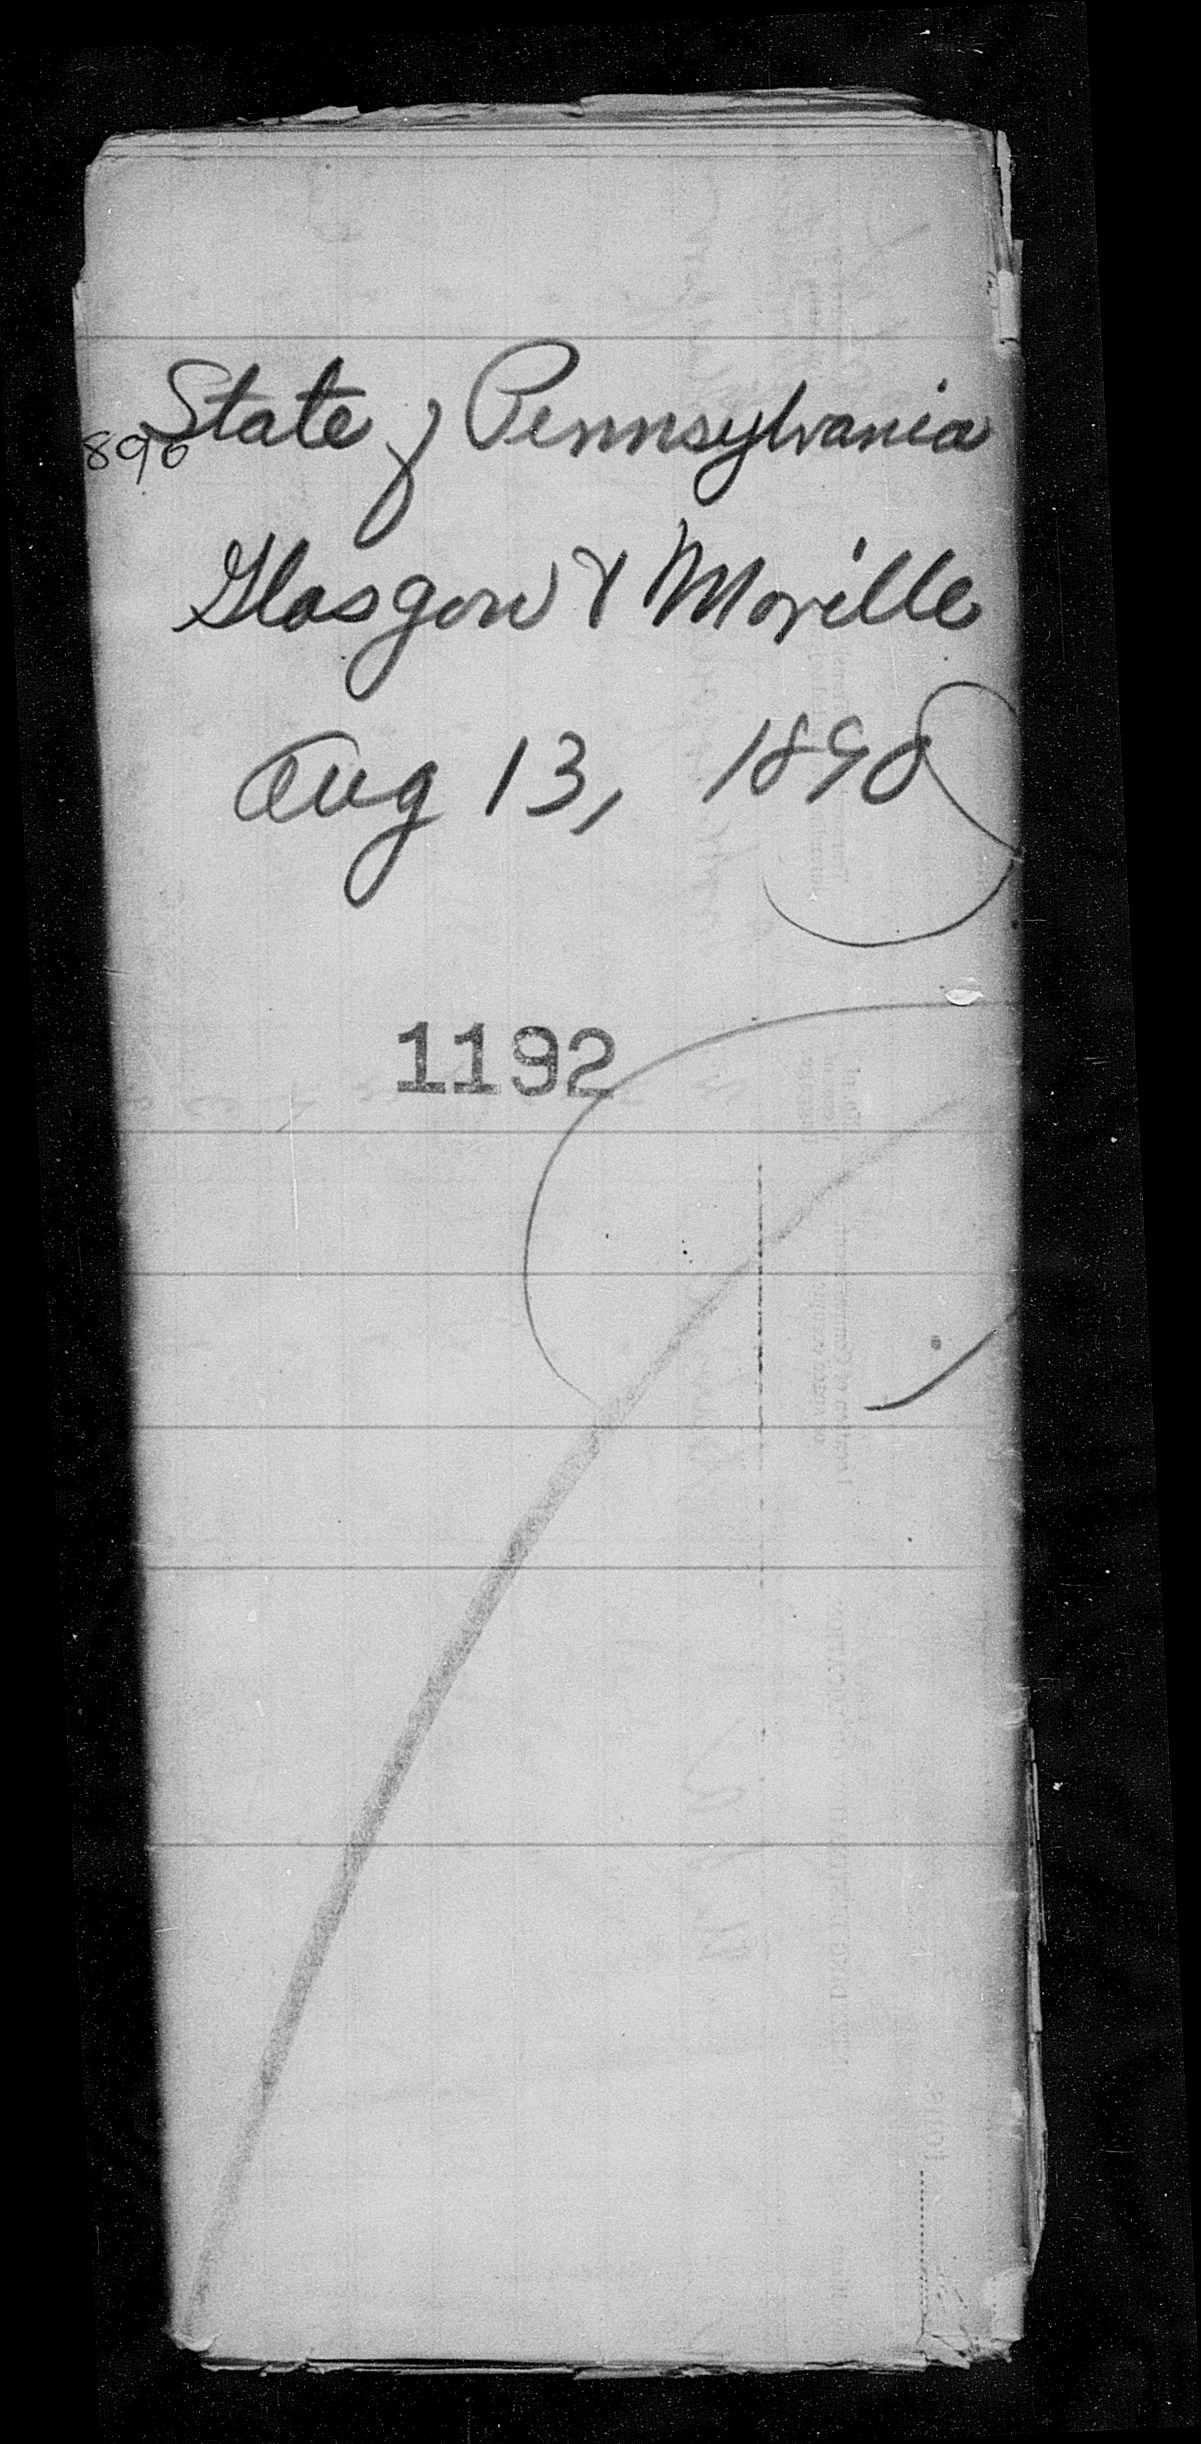 State of Pennsylvania
890
Glasgow & Moville
Aug 13, 1890
1192